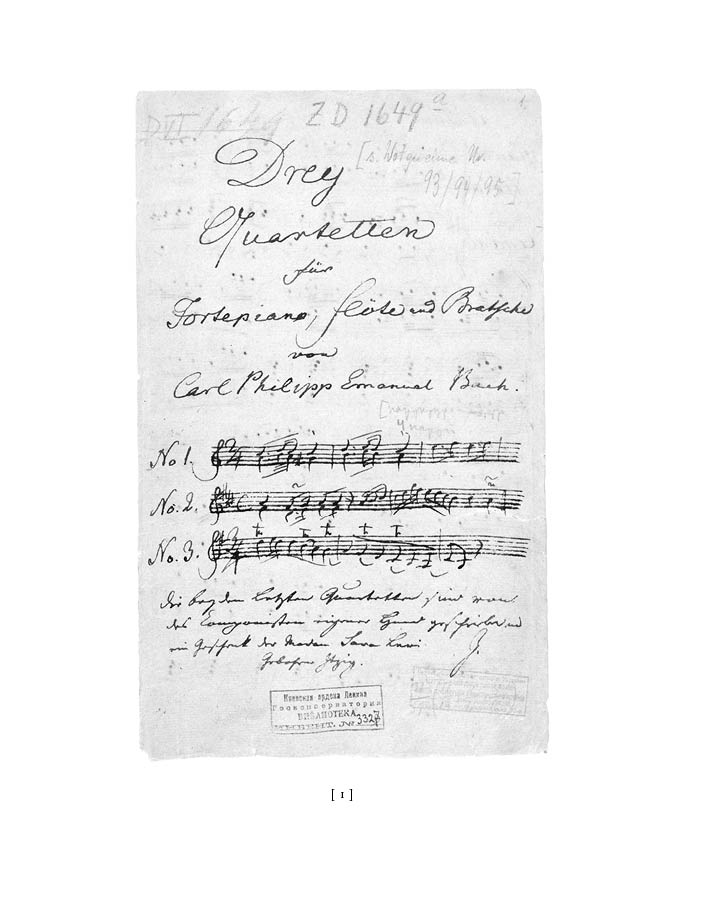 1.
D VI 1649 ZD 1649 a
[s. Wotquenne Nr.
93/94/95]
Drey
Quartetten
für
Fortepiano, Flöte und Bratsche
von
Carl Philipp Emanuel Bach.
No 1.
No. 2.
No. 3.
Die beyden letzten Quartetten sind von
des Componisten eigner Hand geschrieben und
ein Geschenk der Madam Sara Levi
Gebohrne Itzig.
Киевская ордена Ленина
Госконсерватория
БИБЛИОТЕКА
ИНВЕНТ. № 3327
[ 1 ]